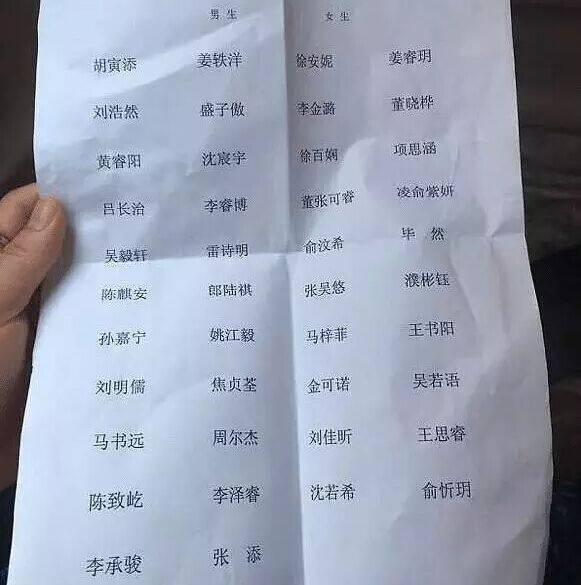 男生 女生
胡寅添 姜轶洋 徐安妮 姜睿玥
刘浩然 盛子傲 李金潞 董晓桦
黄睿阳 沈宸宇 徐百娴 项思涵
吕长治 李睿博 董张可睿 凌俞紫妍
吴毅轩 雷诗明 俞汶希 毕然
陈麒安 郎陆祺 张吴悠 濮彬钰
孙嘉宁 姚江毅 马梓菲 王书阳
刘明儒 焦贞荃 金可诺 吴若语
马书远 周尔杰 刘佳昕 王思睿
陈致屹 李泽睿 沈若希 俞忻玥
李承骏 张添